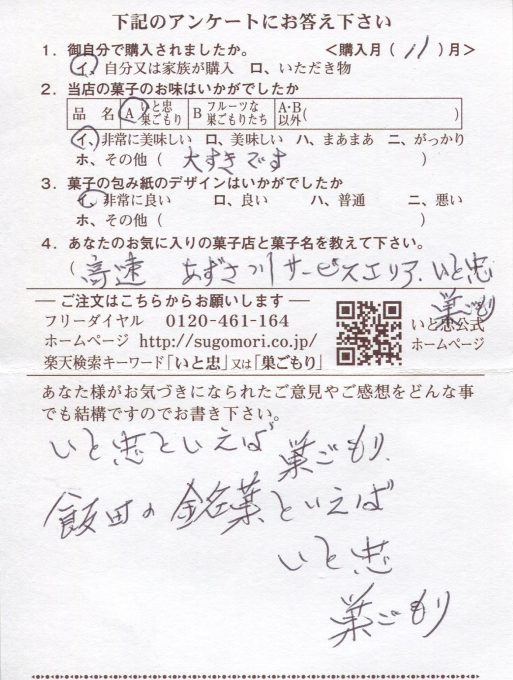 下記のアンケートにお答え下さい
1．御自分で購入されましたか。　＜購入月（ 11 ）月＞
イ、自分又は家族が購入　ロ、いただき物
2．当店の菓子のお味はいかがでしたか
品 名　A いと忠巣ごもり　B フルーツな巣ごもりたち　A・B以外（　）
イ、非常に美味しい　ロ、美味しい　ハ、まあまあ　ニ、がっかり
ホ、その他（ 大すきです ）
3．菓子の包み紙のデザインはいかがでしたか
イ、非常に良い　ロ、良い　ハ、普通　ニ、悪い
ホ、その他（　）
4．あなたのお気に入りの菓子店と菓子名を教えて下さい。
（ 高速　あずさ川サービスエリア、いと忠
巣ごもり
― ご注文はこちらからお願いします ―
フリーダイヤル　0120-461-164
ホームページ　http://sugomori.co.jp/
楽天検索キーワード「いと忠」又は「巣ごもり」
いと忠公式
ホームページ
あなた様がお気づきになられたご意見やご感想をどんな事
でも結構ですのでお書き下さい。
いと忠といえば 巣ごもり、
飯田の 銘菓といえば
いと忠
巣ごもり